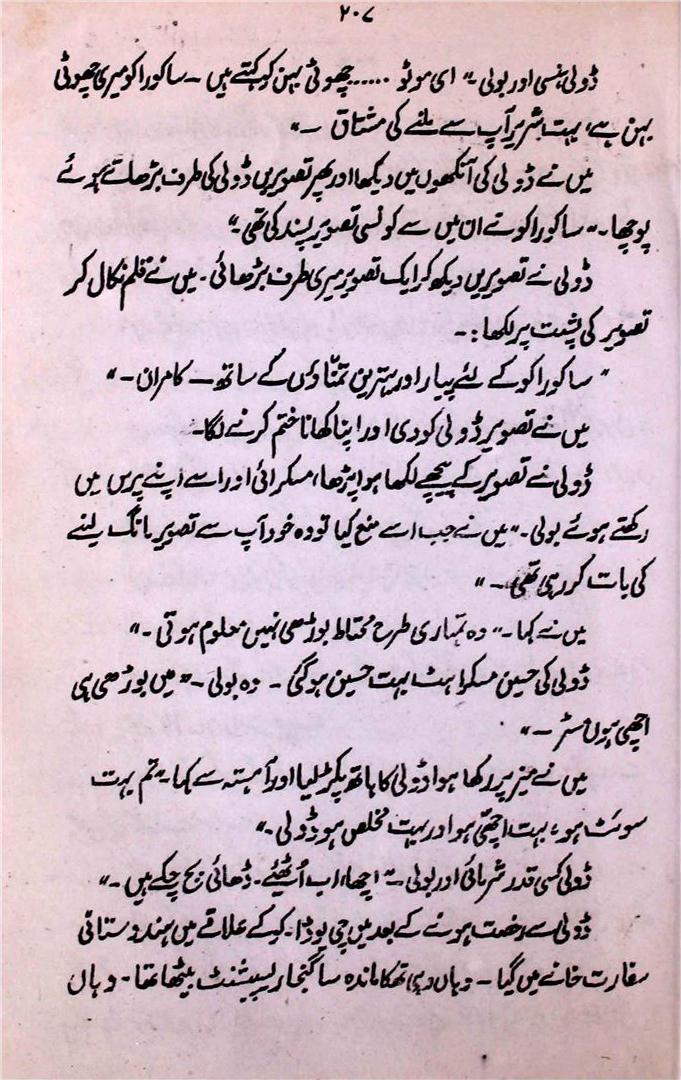 ۲۰۷
ڈولی ہنسی اور بولی۔" ای موٹو ..... چھوٹی بہن کو کہتے ہیں۔ ساکوراکو میری چھوٹی
بہن ہے، بہت شریر آپ سے ملنے کی مشتاق ۔"
میں نے ڈولی کی آنکھوں میں دیکھا اور پھر تصویریں ڈولی کی طرف بڑھاتے ہوئے
پوچھا۔" ساکوراکو نے ان میں سے کونسی تصویر پسند کی تھی۔"
ڈولی نے تصویریں دیکھ کر ایک تصویر میری طرف بڑھائی۔ میں نے قلم نکال کر
تصویر کی پشت پر لکھا :۔
" ساکوراکو کے لئے پیار اور بہترین تمنّاؤں کے ساتھ ۔ کامران ۔"
میں نے تصویر ڈولی کو دی اور اپنا کھانا ختم کرنے لگا۔
ڈولی نے تصویر کے پیچھے لکھا ہوا پڑھا، مسکرائی اور اسے اپنے پرس میں
رکھتے ہوئے بولی۔" میں نے جب اسے منع کیا تو وہ خود آپ سے تصویر مانگ لینے
کی بات کر رہی تھی ۔"
میں نے کہا ۔" وہ تمہاری طرح محتاط بوڑھی نہیں معلوم ہوتی ۔"
ڈولی کی حسین مسکراہٹ بہت حسین ہو گئی ۔ وہ بولی ۔" میں بوڑھی ہی
اچھی ہوں مسٹر ۔"
میں نے میز پر رکھا ہوا ڈولی کا ہاتھ پکڑ لیا اور آہستہ سے کہا ۔" تم بہت
سوئٹ ہو، بہت اچھّی ہو اور بہت مخلص ہو ڈولی ۔"
ڈولی کسی قدر شرمائی اور بولی ۔" اچھا، اب اُٹھئے ۔ ڈھائی بج چکے ہیں ۔"
ڈولی سے رخصت ہونے کے بعد میں چی یوڈا ۔ کیو کے علاقے میں ہندوستانی
سفارت خانے میں گیا ۔ وہاں وہی تھکا ماندہ سا گنجا ریسیپشنٹ بیٹھا تھا ۔ وہاں